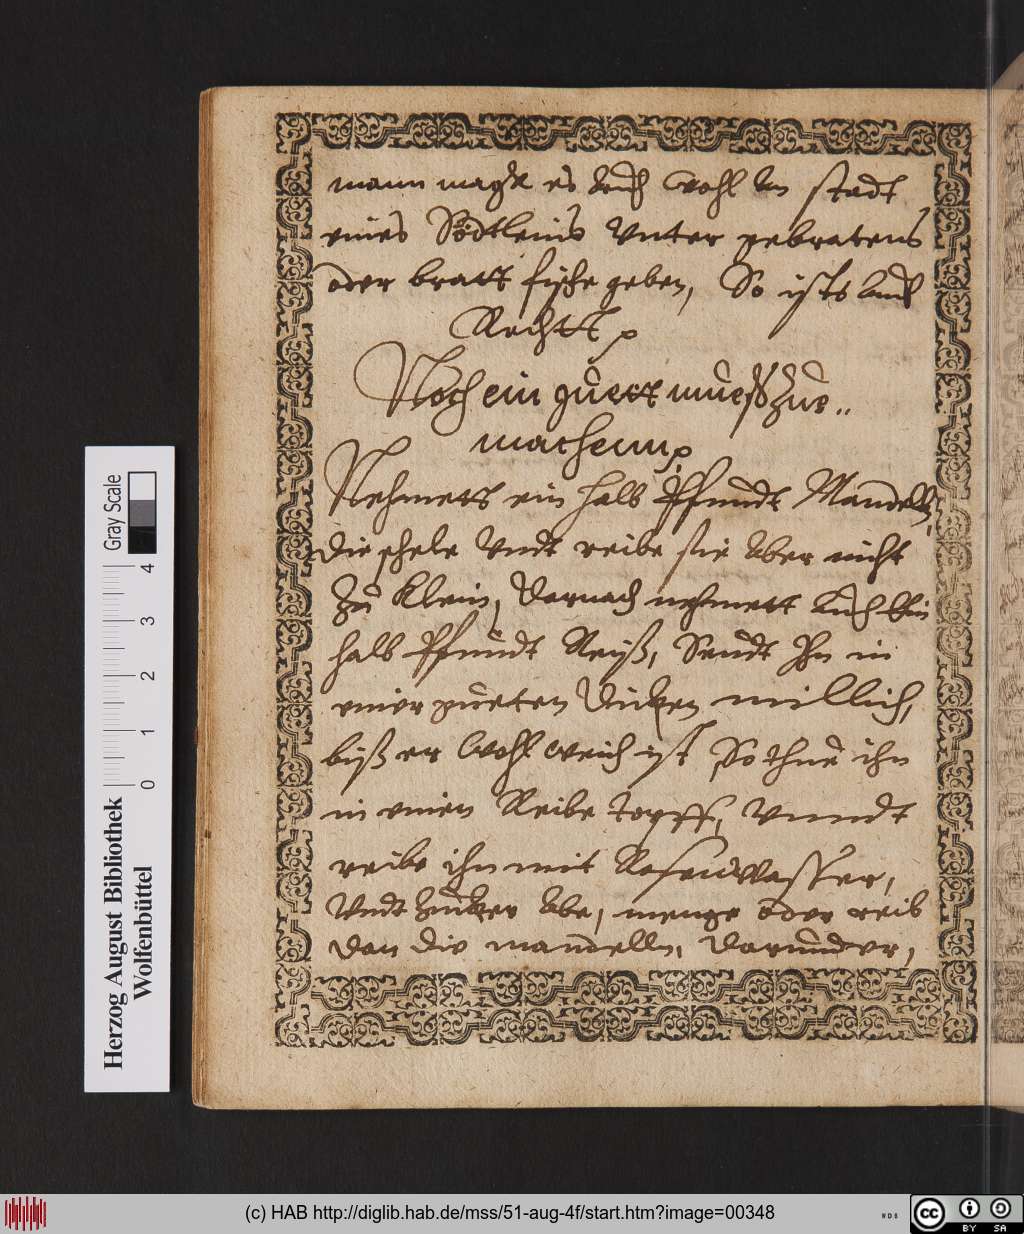 mann magk es auch wohl an stadt
eines Södtleins unter gebratens
oder bratt fische geben, So ists auch
Rechtt
Noch ein guett mueß zue..
machenn
Nehmett ein halb Pfundt Mandelln,
die schele Undt reibe sie aber nicht
zu klein, darnach nehmett auch ein
halb Pfundt Reiß, Seudt Ihn in
einer gueten Dicken millich,
biß er wohl weich ist So thue ihn
in einen Reibe topff, Unndt
reibe ihn mit Rosenwasser,
Undt Zucker abe, menge oder reib
dan die mandelln, darunder,
Gray Scale
4
3
2
1
0
Herzog August Bibliothek
Wolfenbüttel
(c) HAB http://diglib.hab.de/mss/51-aug-4f/start.htm?image=00348
WDB
cc
BY SA